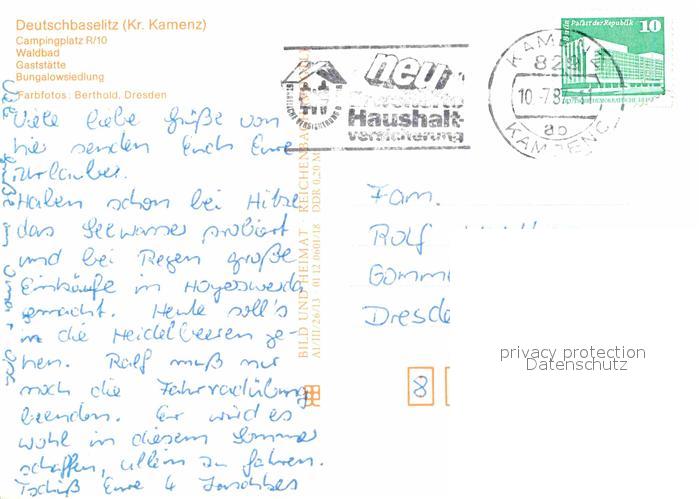 Deutschbaselitz (Kr. Kamenz)
Campingplatz R/10
Waldbad
Gaststätte
Bungalowsiedlung
Farbfotos: Berthold, Dresden
Viele liebe Grüße von
hier senden Euch Eure
Urlauber.
Haben schon bei Hitze
das Seewasser probiert
und bei Regen große
Einkäufe in Hoyerswerda
gemacht. Heute soll's
in die Heidelbeeren ge-
hen. Ralf muß nur
noch die Fahrradübung
beenden. Er wird es
wohl in diesem Sommer
schaffen, allein zu fahren.
Tschüß Eure 4
BILD UND HEIMAT REICHENBACH
A1/III/26/13 01 12 0601/18 DDR 0,20 M
neu
Haushalt-
versicherung
Palast der Republik 10
KAMENZ
829
10.-7.8
ap
KAMJENC
Fam.
Rolf
Gommi
Dresde
8
privacy protection
Datenschutz